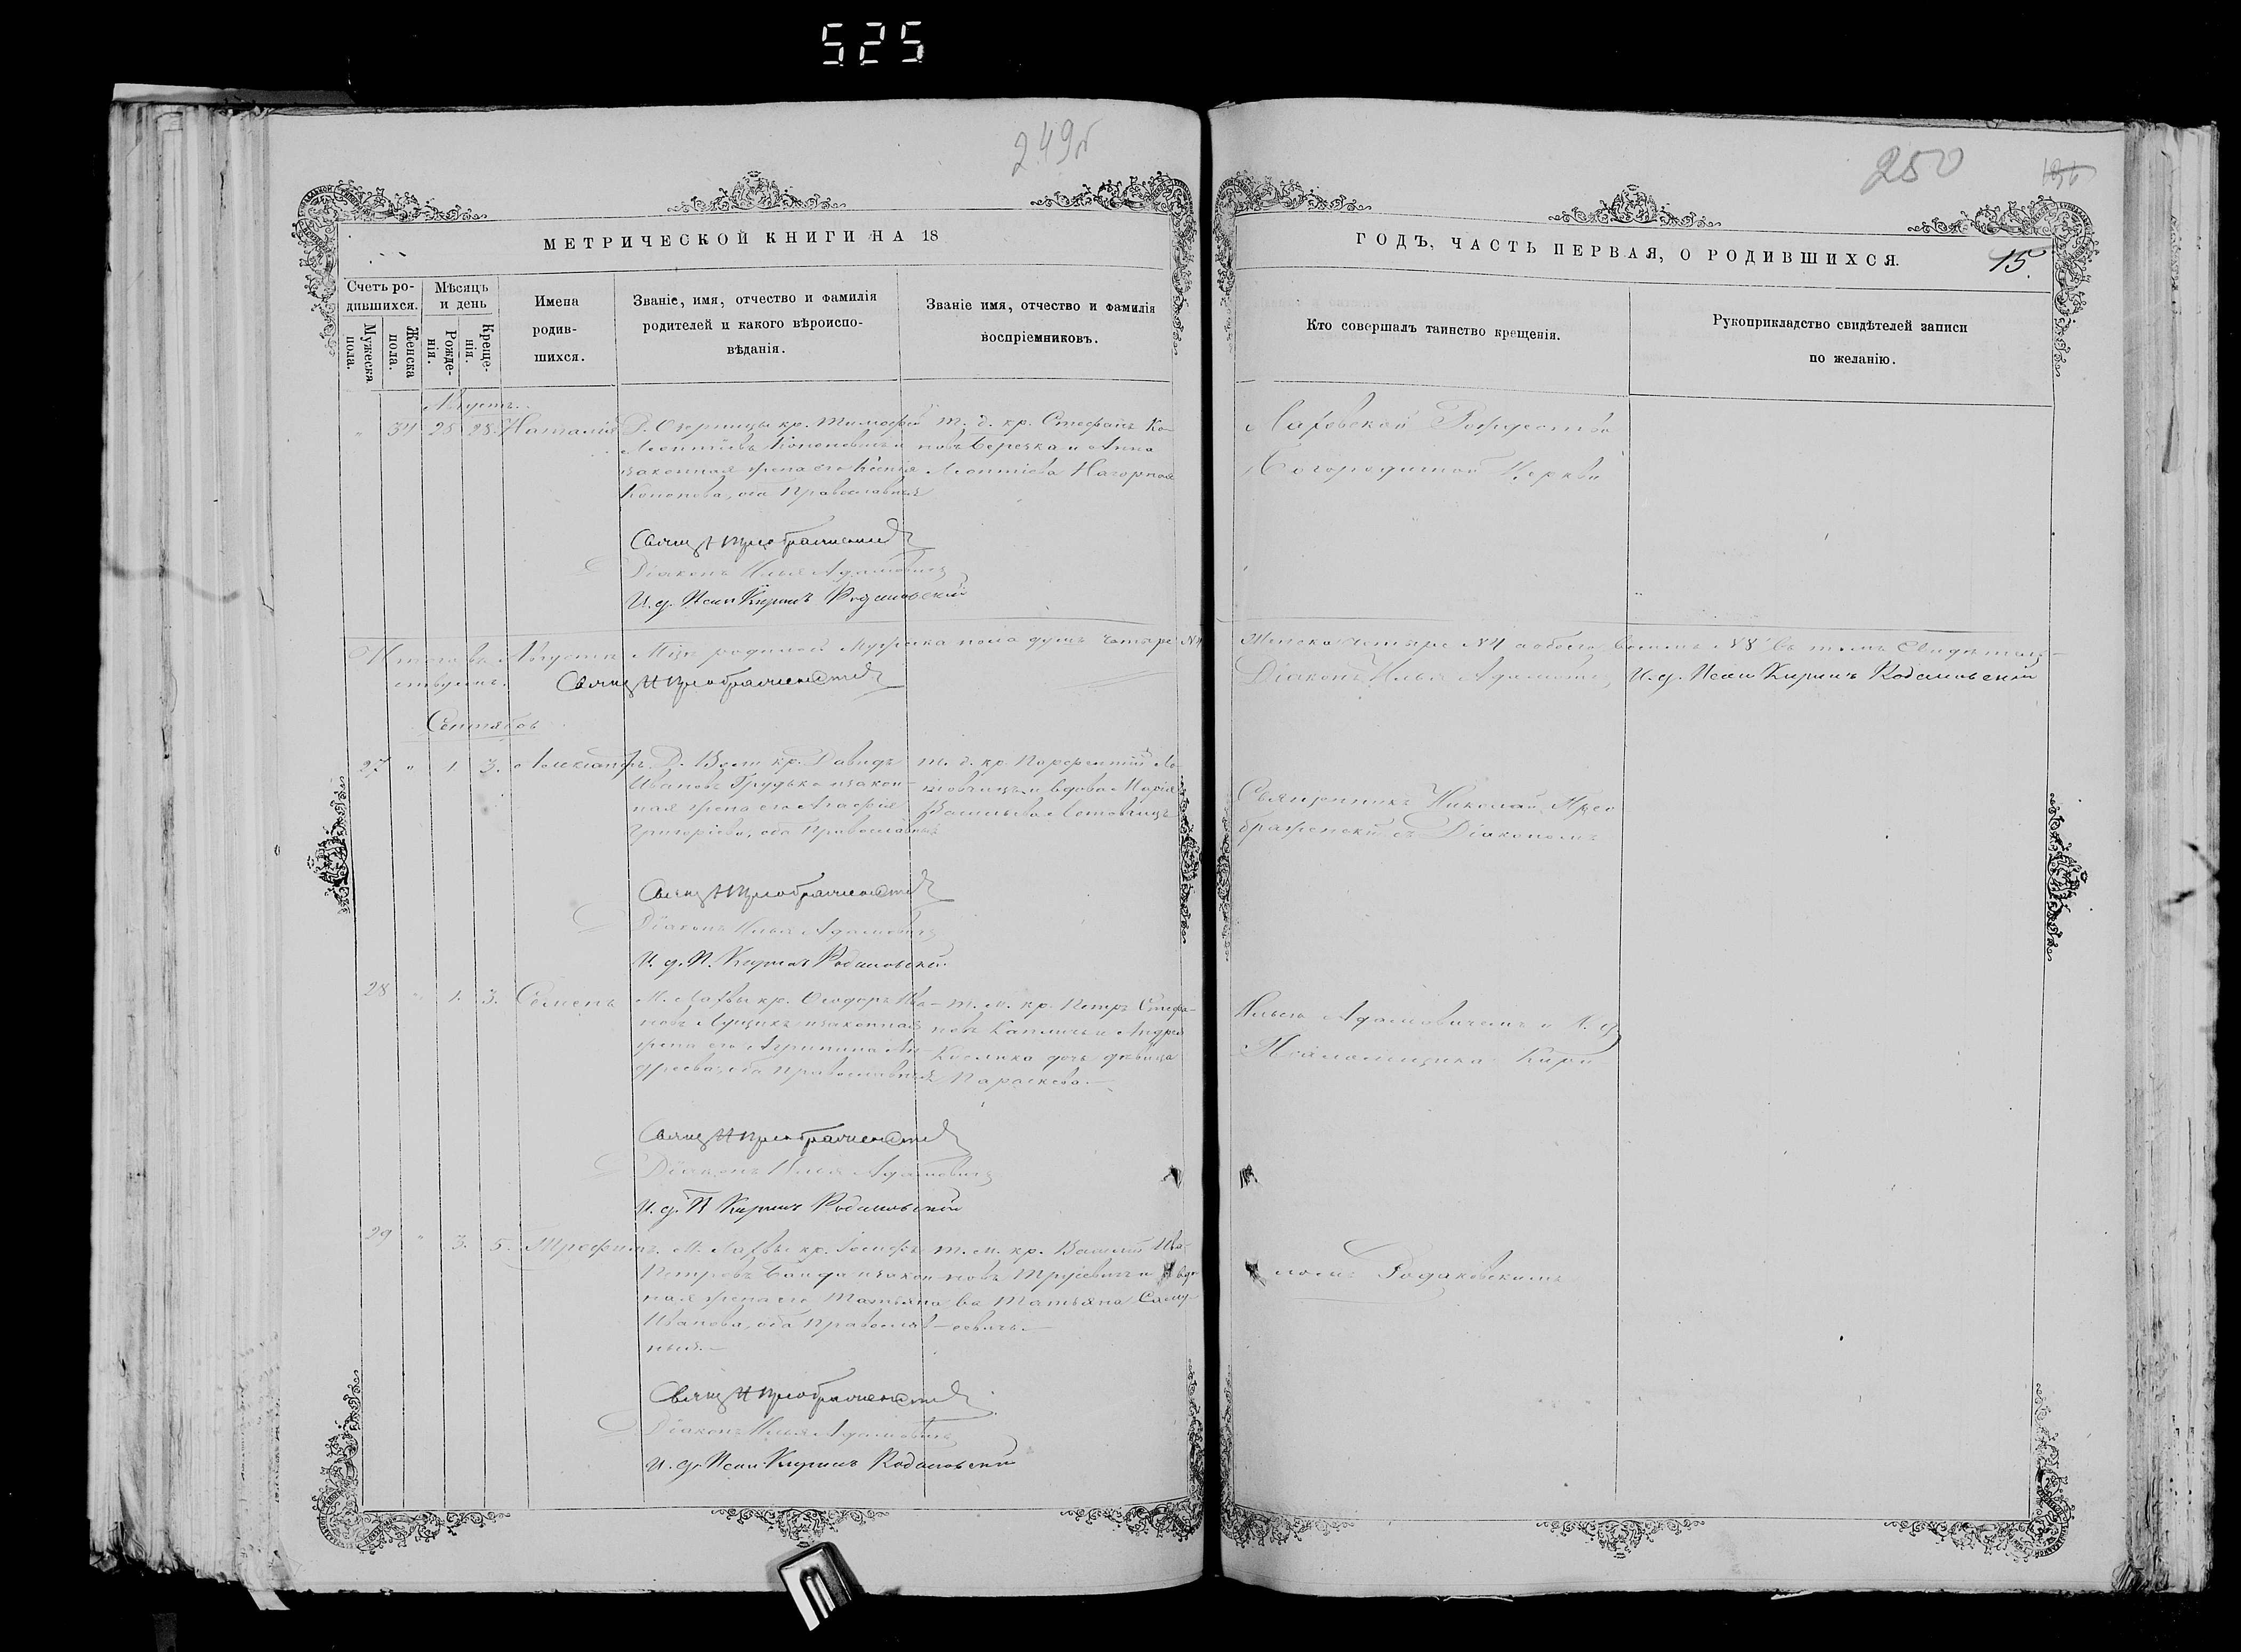 525
249б
250
МЕТРИЧЕСКОЙ КНИГИ НА 18
ГОДЪ, ЧАСТЬ ПЕРВАЯ, О РОДИВШИХСЯ.
15.
Счетъ ро-
дившихся.
Мужеска
пола.
Женска
пола.
Мѣсяцъ
и день
Рожде-
нія.
Креще-
нія.
Имена
родив-
шихся.
Званіе, имя, отчество и фамилія
родителей и какого вѣроиспо-
вѣданія.
Званіе имя, отчество и фамилія
воспріемниковъ.
Кто совершалъ таинство крещенія.
Рукоприкладство свидѣтелей записи
по желанію.
Августъ.
" 34 28 28. Наталія
Д. Озерницы кр. Тимофей
Леонтіевъ Кононовичъ и
законная жена его Ксенія
Кононова, оба Православные
т. д. кр. Стефанъ Ко-
новъ Березка и Анна
Леонтіева Нагорная
Лаховской Рождество
Богородичной Церкви
Свящ Н Преображенскій
Діаконъ Илья Адамовичъ
И. д. Псал Кирилъ Родаковскій
Итого въ Августѣ Мцѣ родилось Мужеска пола душъ четыре №4
Женска четыре №4 а обоего восемь №8 Въ томъ Свидѣтель-
ствуемъ. Свящ Н Преображенскій
Діаконъ Илья Адамовичъ, И. д. Псал Кирилъ Родаковскій
Сентябрь
27 " 1. 3. Александръ
Д. Вели кр. Давидъ
Ивановъ Грудько и закон-
ная жена его Агафія
Григоріева, оба Православные
т. д. кр. Порфентій
и вдова Марія
Васильева
Священникъ Николай Прео
браженскій съ Діакономъ
Свящ Н Преображенскій
Діаконъ Илья Адамовичъ
И. д. П. Кирилъ Родаковскій
28 " 1. 3. Семенъ
М. Лахвы кр. Ѳеодоръ Ива-
новъ Лущикъ и законная
жена его Агрипина Ан-
дреева, оба православные
т. м. кр. Петръ Стефа-
новъ и Андрея
дочь дѣвица
Параскева.
Ильею Адамовичемъ и И. д.
Псаломщика Кири
Свящ Н Преображенскій
Діаконъ Илья Адамовичъ
И. д. П Кирилъ Родаковскій
29 " 3. 5. Трофимъ.
М. Лахвы кр. Іосифъ
Петровъ и закон-
ная жена его Татьяна
Иванова, оба Православ-
ные.
т. м. кр. Василій Ива-
новъ Трусевичъ и вдо
ва Татьяна
ломъ Родаковскимъ
Свящ Н Преображенскій
Діаконъ Илья Адамовичъ
И. д. Псал Кирилъ Родаковскій